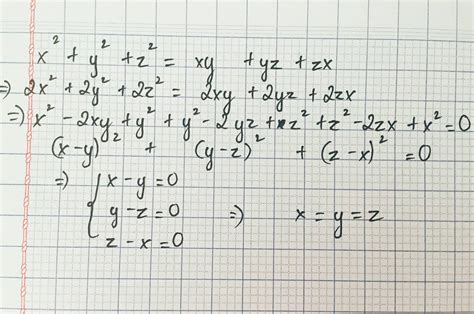 x² + y² + z² = xy + yz + zx
⇒ 2x² + 2y² + 2z² = 2xy + 2yz + 2zx
⇒ x² - 2xy + y² + y² - 2yz + z² + z² - 2zx + x² = 0
(x-y)² + (y-z)² + (z-x)² = 0
⇒ { x - y = 0
y - z = 0 ⇒ x = y = z
z - x = 0